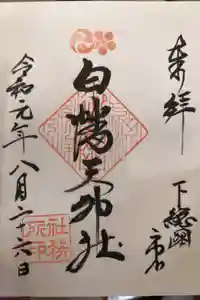 奉拝
下総國
白幡天神社
令和元年八月二十六日
社務
所印